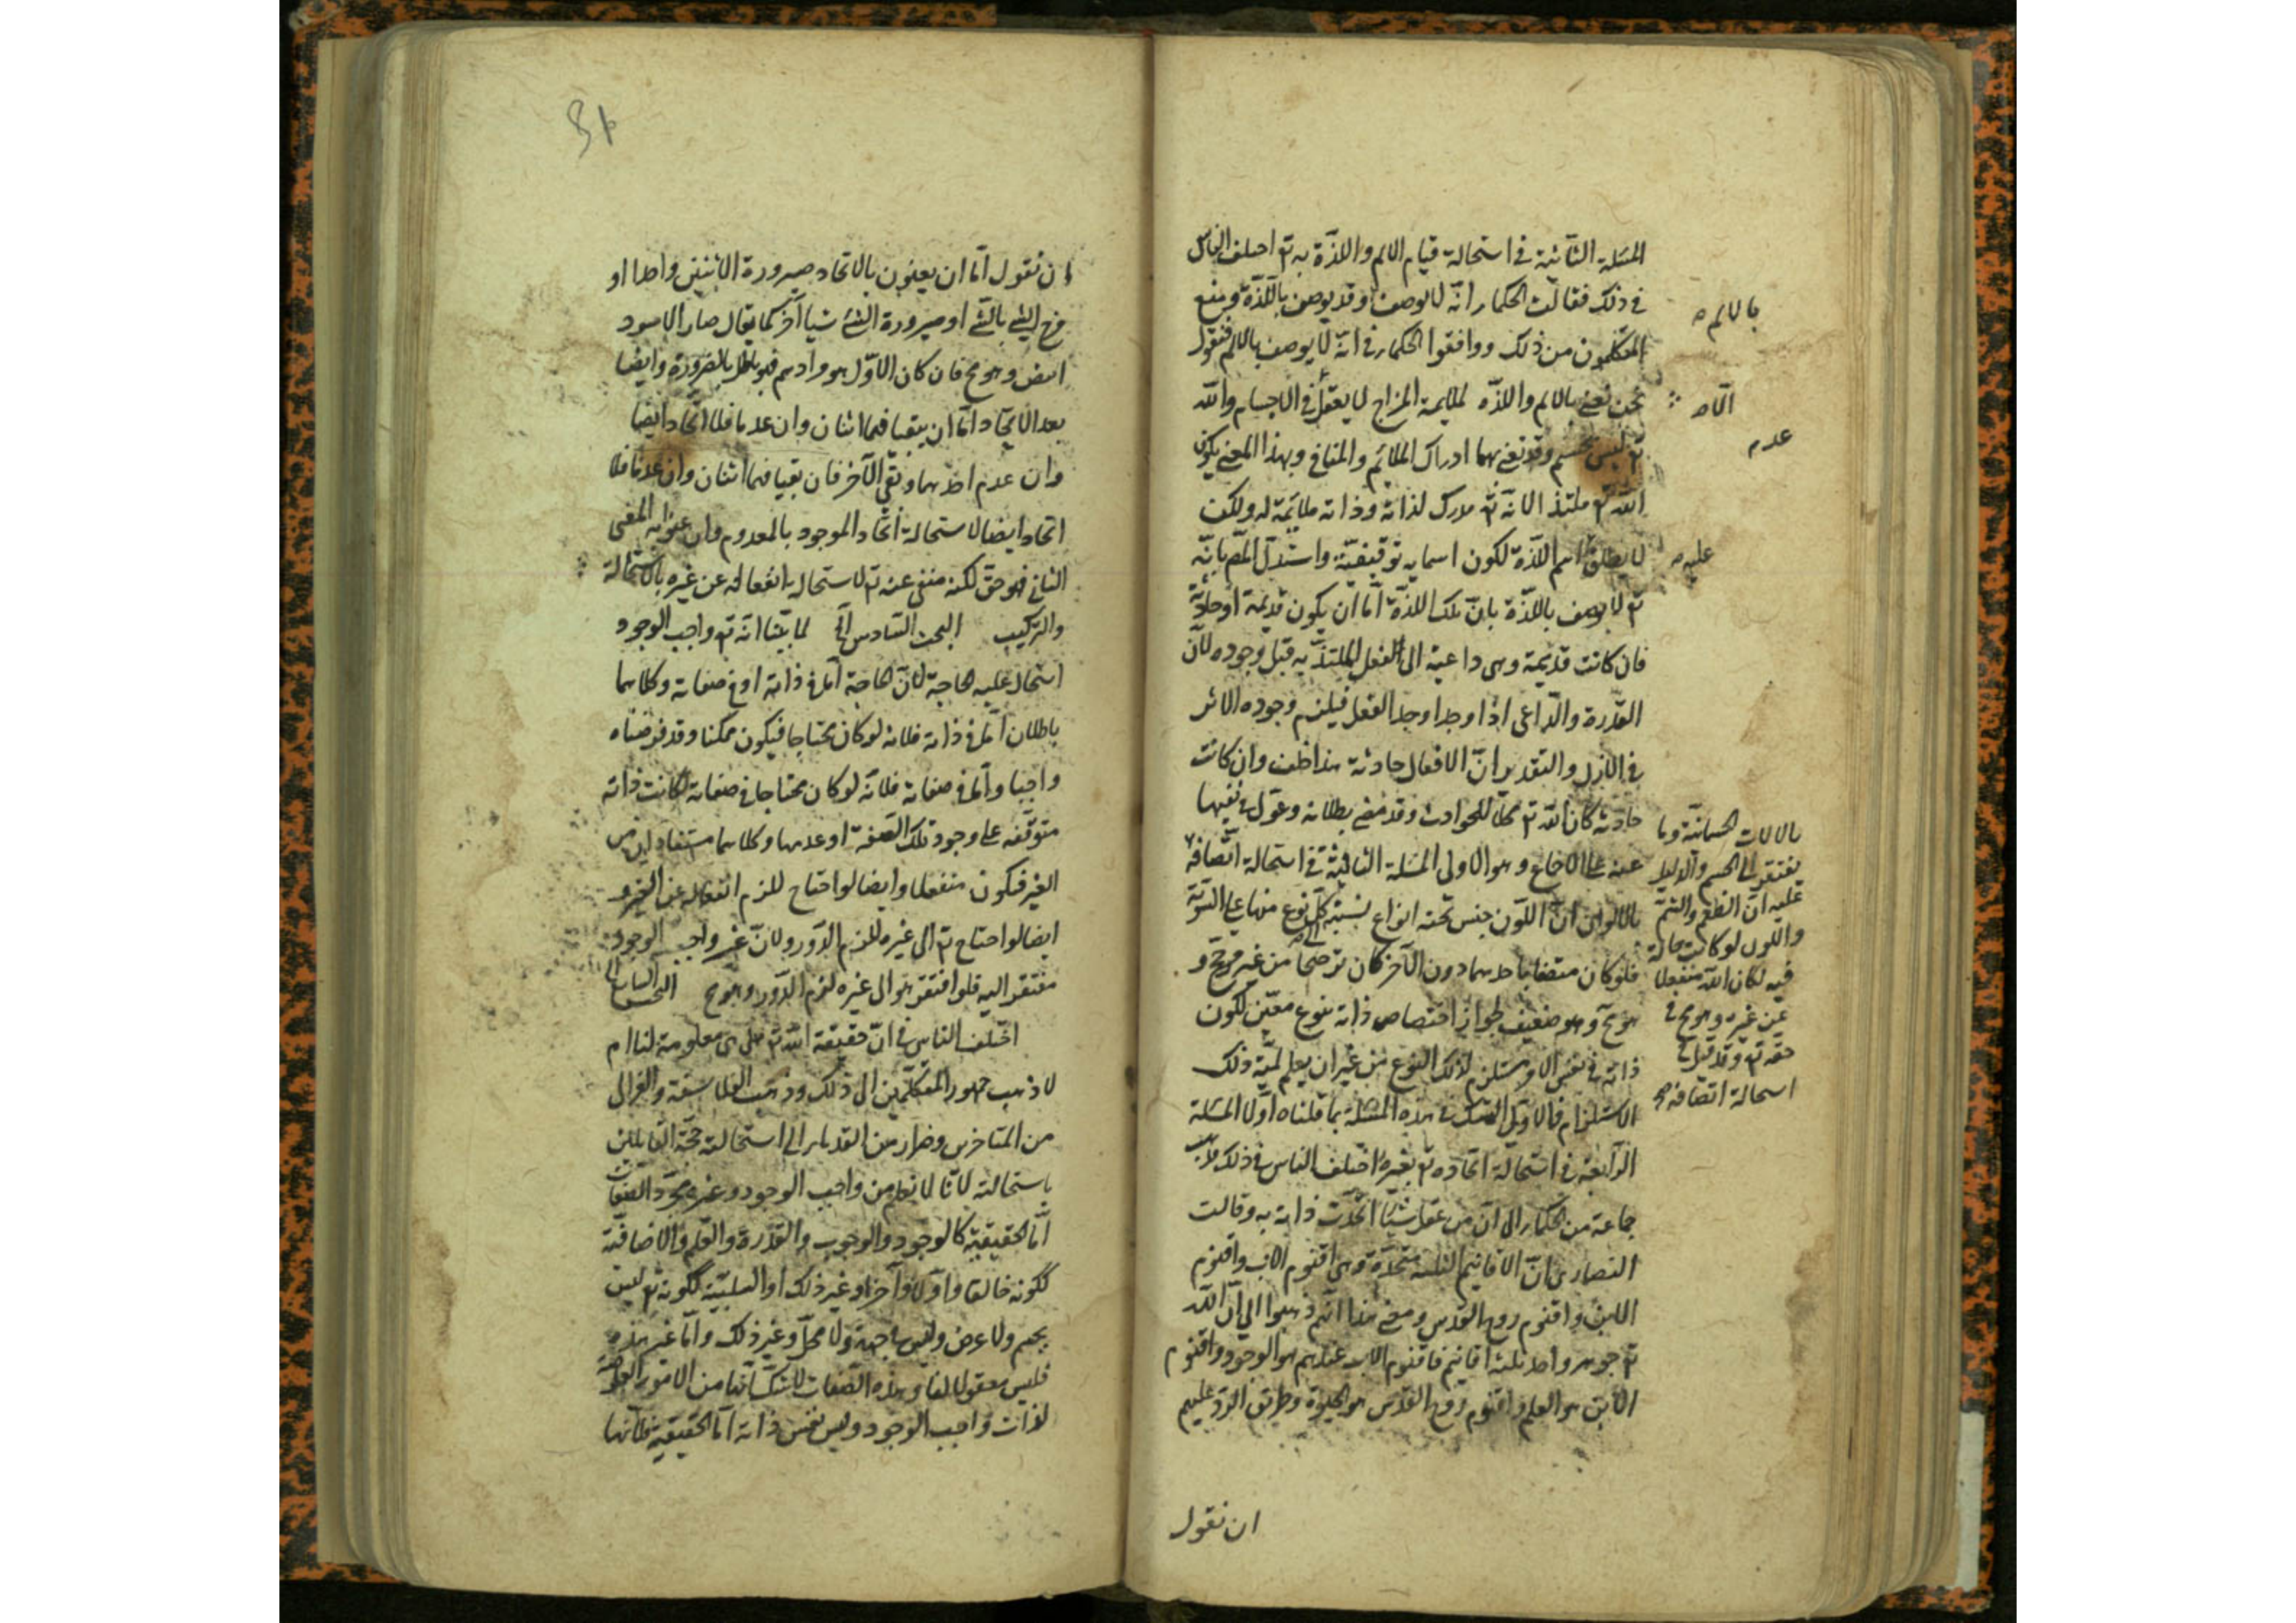 المسئلة الثانية فى استحالة قيام الالم واللذة به تع اختلف الناس
فى ذلك فقالت الحكماء انه لا يوصف وقد يوصف باللذة ومنع
بالالم
المتكلمون من ذلك ووافقوا الحكماء فى انه لا يوصف بالالم فنقول
نحن نعنى بالالم واللذة لملايمة المزاج لا يعقل فى الاجسام والله
عدم
تع ليس بجسم وقد نعنى بهما ادراك الملائم والمنافى وبهذا المعنى يكون
الله تع ملتذ الانه تع مدرك لذاته وذاته ملايمة له ولكن
لا يطلق اسم اللذة لكون اسمايه توقيفية واستدل المص بانه
عليه
تع لا يوصف باللذة بان تلك اللذة اما ان يكون قديمة او حادثة
فان كانت قديمة وهى داعية الى الفعل الملتذ به قبل وجوده لان
القدرة والداعى اذا وجدا وجد الفعل فيلزم وجوده الاثر
فى الازل والتقدير ان الافعال حادثة هذا خلف وان كانت
حادثة كان الله تع محلا للحوادث وقد مضى بطلانه وعول فى نفيها
عنه على الاجماع وهو الاولى المسئلة الثالثة فى استحالة اتصافه
بالالوان ان اللون جنس تحته انواع نسبة كل نوع منها على السوية
فلو كان متصفا باحدهما دون الاخر كان ترجيحا من غير مرجح و
هو مح وهو ضعيف لجواز اقتصاص ذاته بنوع معين لكون
ذاته فى نفس الامر مستلزم لذلك النوع من غير ان يعلم لمية ذلك
الاستلزام فالاولى التمسك فى هذه المسئلة بما قلناه اولا المسئلة
الرابعة فى استحالة اتحاده تع بغيره اختلف الناس فى ذلك فذهب
جماعة من الحكماء الى ان من عقل شيئا اتحدت ذاته به وقالت
النصارى ان الاقانيم الثلثة متحدة وهى اقنوم الاب واقنوم
الابن واقنوم روح القدس ومعنى هذا انهم ذهبوا الى ان الله
تع جوهر واحد ثلثة اقانيم فاقنوم الاب عندهم هو الوجود واقنوم
الابن هو العلم واقنوم روح القدس هو الحيوة وطريق الرد عليهم
ان نقول
بالالات الجسمانية وما
يفتقر الى الجسم والدليل
عليه ان الطعم والشم
واللون لو كانت حالة
فيه لكان الله منفعلا
عن غيره وهو مح فى
حقه تع وقد قيل فى
استحالة اتصافه
ان نقول اما ان يعنون بالاتحاد صيرورة الاثنين واحدا او
مزج الشئ بالشئ او صيرورة الشئ شيا آخر كما يقال صار الاسود
ابيض وهو مح فان كان الاول هو مرادهم فهو باطل بالضرورة وايضا
بعد الاتحاد اما ان يبقيا فهما اثنان وان عدما فلا اتحاد ايضا
وان عدم احدهما وبقى الآخر فان بقيا فهما اثنان وان عدما فلا
اتحاد ايضا لاستحالة اتحاد الموجود بالمعدوم وان عنوا به المعنى
الثانى فهو حق لكنه منفى عنه تع لاستحالة انفعاله عن غيره بالاستحالة
والتركيب البحث السادس الخ لما بينا انه تع واجب الوجود
استحال عليه الحاجة لان الحاجة اما فى ذاته او فى صفاته وكلاهما
باطلان اما فى ذاته فلانه لو كان محتاجا فيكون ممكنا وقد فرضناه
واجبا واما فى صفاته فلانه لو كان محتاجا فى صفاته لكانت ذاته
متوقفه على وجود تلك الصفة او عدمها وكلاهما مستفادان من
الغير فيكون منفعلا وايضا لو احتاج للزم انفعاله عن الغير و
ايضا لو احتاج تع الى غيره للزم الدور ولان غير واجب الوجود
مفتقر اليه فلو افتقر هو الى غيره لزم الدور وهو مح البحث السابع
اختلف الناس فى ان حقيقة الله تع هل هى معلومة لنا ام
لا ذهب جمهور المتكلمين الى ذلك وذهب الفلاسفة والغزالى
من المتاخرين وضرار من القدماء الى استحالته حجة القايلين
باستحالته لانا لا نعلم من واجب الوجود وغيره مجرد الصفات
اما الحقيقية كالوجود والوجوب والقدرة والعلم والاضافية
ككونه خالقا واولا وآخرا وغير ذلك او السلبية ككونه تع ليس
بجسم ولا عرض وليس فى جهة ولا محل وغير ذلك واما غير هذه
فليس معقولا لنا وهذه الصفات لا شك انها من الامور العارضة
لذات واجب الوجود وليس نفس ذاته اما الحقيقية فلانها